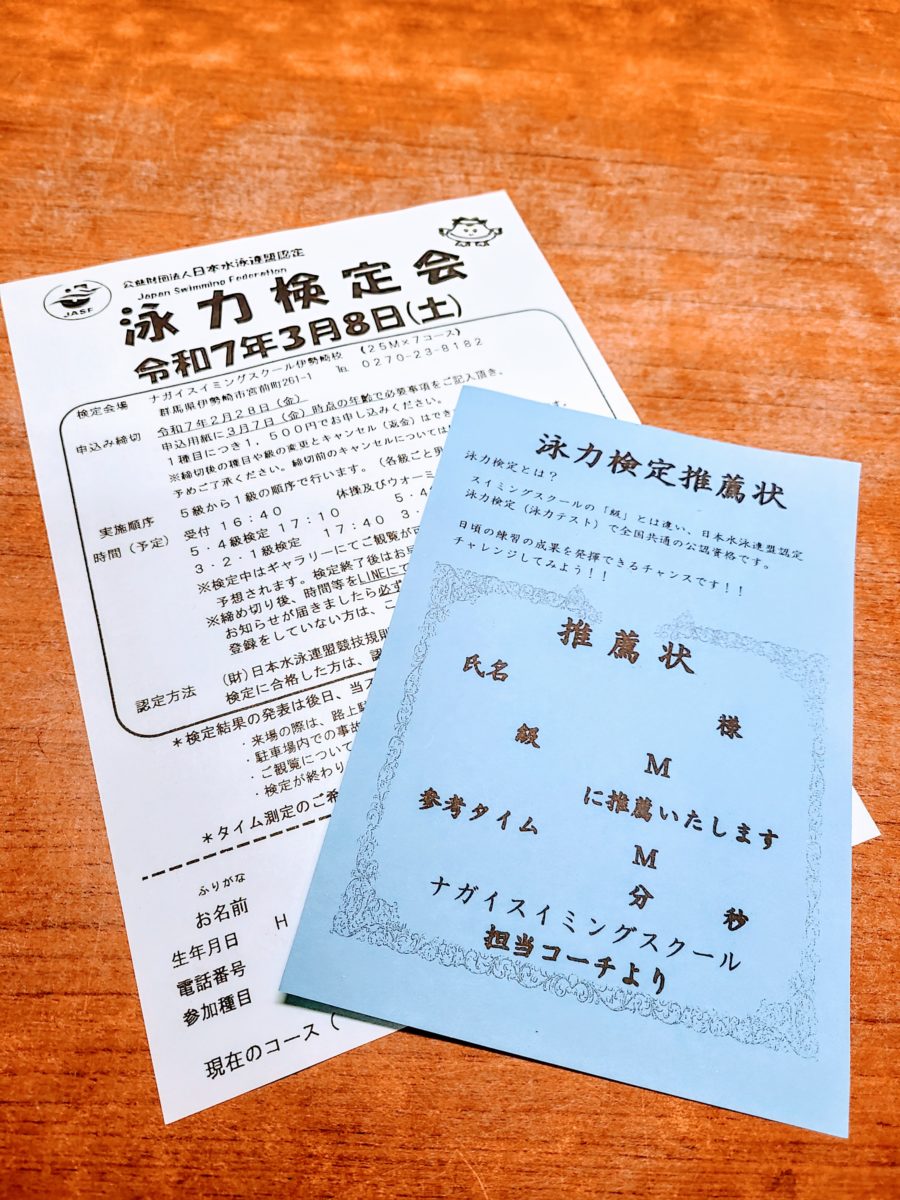 JASF
公益財団法人日本水泳連盟認定
Japan Swimming Federation
泳力検定会
令和7年3月8日(土)
検定会場 ナガイスイミングスクール伊勢崎校 (25M×7コース)
群馬県伊勢崎市宮前町261-1 ℡ 0270-23-8182
申込み締切 令和7年2月28日(金)
申込用紙に3月7日(金)時点の年齢で必要事項をご記入頂き、
1種目につき1,500円でお申し込みください。
※締切後の種目や級の変更とキャンセル(返金)はでき
予めご了承ください。締切前のキャンセルについては
実施順序 5級から1級の順序で行います。(各級ごと男
時間(予定) 受付 16:40 体操及びウオーミ
5.4級検定 17:10 5.4
3.2.1級検定 17:40 3.
※検定中はギャラリーにてご観覧が可
予想されます。検定終了後はお早
※締め切り後、時間等をLINEにて
お知らせが届きましたら必ず
登録をしていない方は、こ
認定方法 (財)日本水泳連盟競技規則
検定に合格した方は、認
*検定結果の発表は後日、当ス
・来場の際は、路上駐
・駐車場内での事故
・ご観覧について
・検定が終わり
*タイム測定のご希
ふりがな
お名前
生年月日 H
電話番号
参加種目
現在のコース(
泳力検定推薦状
泳力検定とは?
スイミングスクールの「級」とは違い、日本水泳連盟認定
泳力検定(泳力テスト)で全国共通の公認資格です。
日頃の練習の成果を発揮できるチャンスです!!
チャレンジしてみよう!!
推薦状
氏名 様
級 M
に推薦いたします
参考タイム M
分 秒
ナガイスイミングスクール
担当コーチより